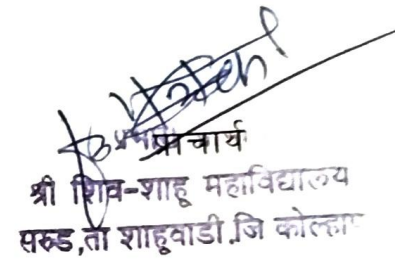 प्राचार्य
श्री शिव-शाहू महाविद्यालय
सरुड,ता शाहूवाडी,जि कोल्हाप